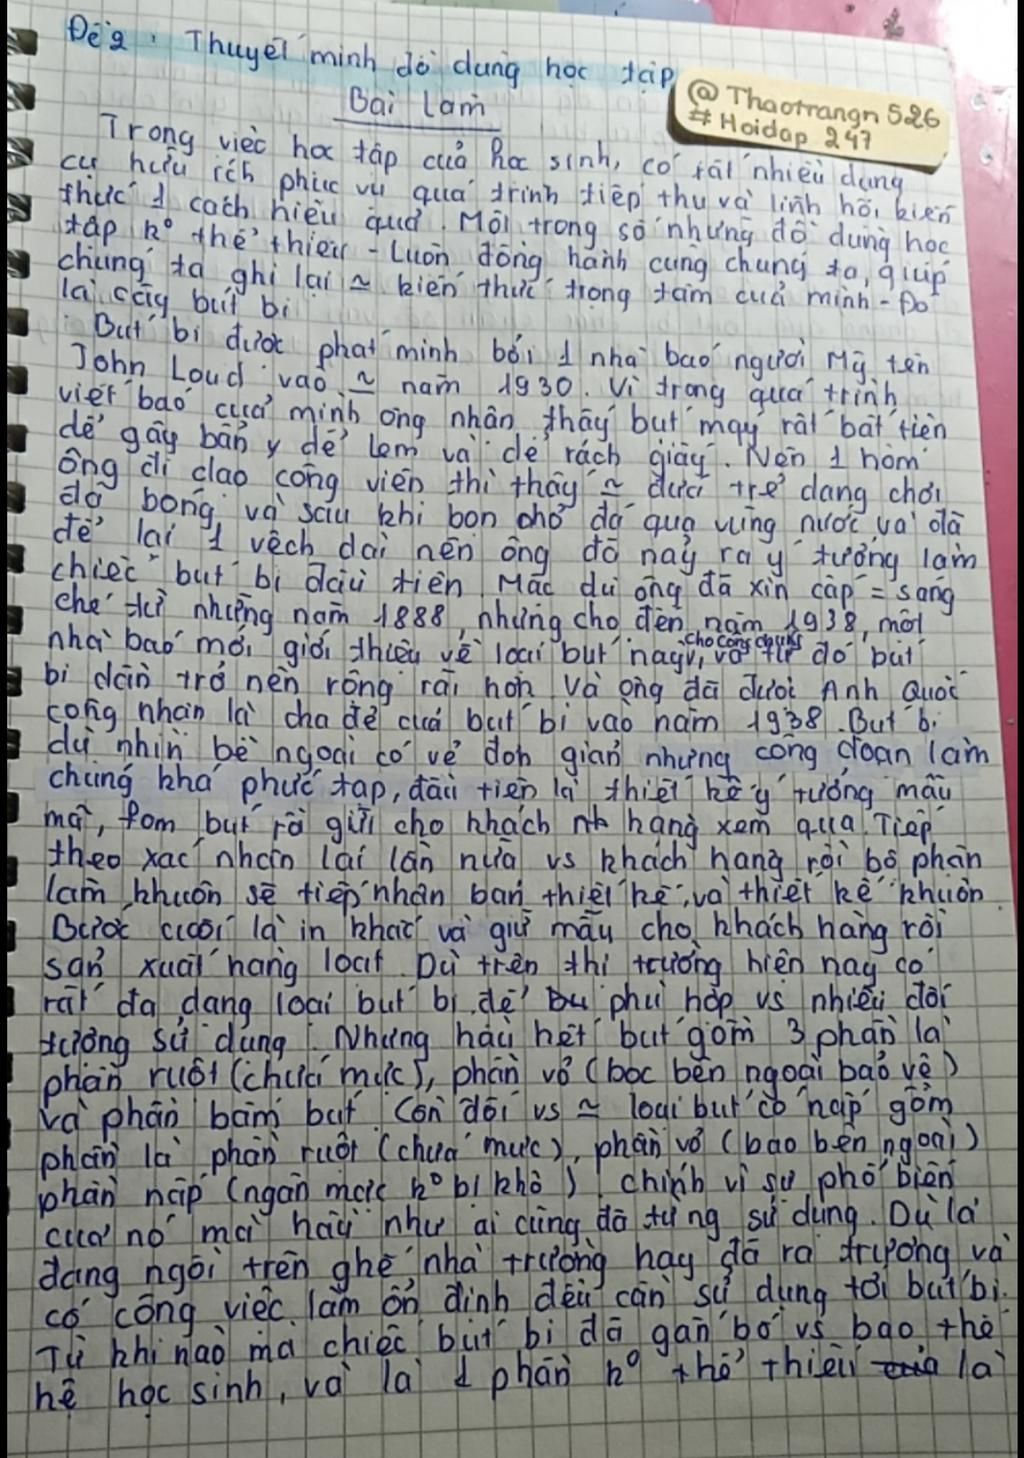 Đề 2: Thuyết minh đồ dùng học tập
Bài làm
@ Thaotrangn 526
# Hoidap 247
Trong việc học tập của học sinh, có rất nhiều dụng
cụ hữu ích phục vụ quá trình tiếp thu và lĩnh hội kiến
thức 1 cách hiệu quả. Một trong số những đồ dùng học
tập k° thể thiếu - Luôn đồng hành cùng chúng ta, giúp
chúng ta ghi lại ~ kiến thức trọng tâm của mình - Đó
là cây bút bi
Bút bi được phát minh bởi 1 nhà báo người Mỹ tên
John Loud vào ~ năm 1930. Vì trong quá trình
viết báo của mình ông nhận thấy bút máy rất bất tiện
dễ gây bẩn, dễ lem và dễ rách giấy. Nên 1 hôm
ông đi dạo công viên thì thấy ~ đứa trẻ đang chơi
đá bóng, và sau khi bọn chở đá qua vũng nước và đã
để lại 1 vệch dài nên ông đó nảy ra ý tưởng làm
chiếc bút bi đầu tiên. Mặc dù ông đã xin cấp = sáng
chế từ những năm 1888, nhưng cho đến năm 1938, một
nhà báo mới giới thiệu về loại bút này cho công chúng, và từ đó bút
bi dần trở nên rộng rãi hơn. Và ông đã được Anh Quốc
công nhận là cha đẻ của bút bi vào năm 1938. Bút bi
dù nhìn bề ngoài có vẻ đơn giản nhưng công đoạn làm
chúng khá phức tạp, đầu tiên là thiết kế ý tưởng mẫu
mã, fom bút rồi gửi cho khách hàng xem qua. Tiếp
theo xác nhận lại lần nữa vs khách hàng rồi bộ phận
làm khuôn sẽ tiếp nhận bản thiết kế, và thiết kế khuôn.
Bước cuối là in khắc và giữ mẫu cho khách hàng rồi
sản xuất hàng loạt. Dù trên thị trường hiện nay có
rất đa dạng loại bút bi để phù hợp vs nhiều đối
tượng sử dụng. Nhưng hầu hết bút gồm 3 phần là
phần ruột (chứa mực), phần vỏ (bọc bên ngoài bảo vệ)
và phần bấm bút. Còn đối vs ~ loại bút có nắp gồm
phần là phần ruột (chứa mực), phần vỏ (bao bên ngoài)
phần nắp (ngăn mực k° bị khô). Chính vì sự phổ biến
của nó mà hầu như ai cũng đã từng sử dụng. Dù là
đang ngồi trên ghế nhà trường hay đã ra trường và
có công việc làm ổn định đều cần sử dụng tới bút bi.
Từ khi nào mà chiếc bút bi đã gắn bó vs bao thế
hệ học sinh, và là 1 phần k° thể thiếu là